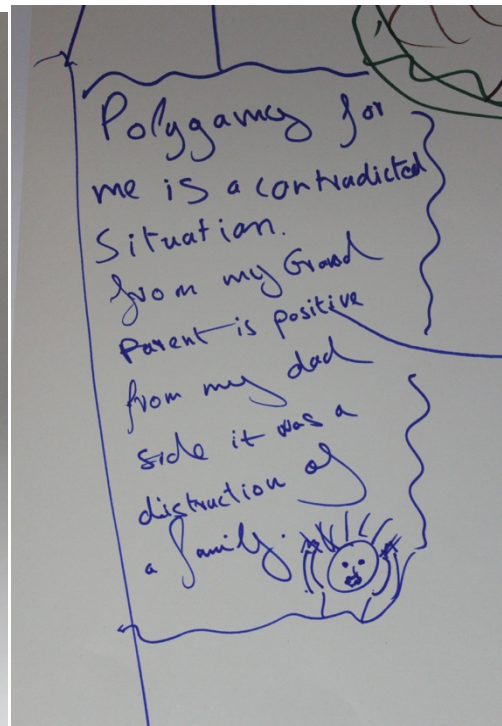 Polygamy for
me is a contradicted
Situation.
from my Grand
Parent is positive
from my dad
side it was a
distruction of
a family.